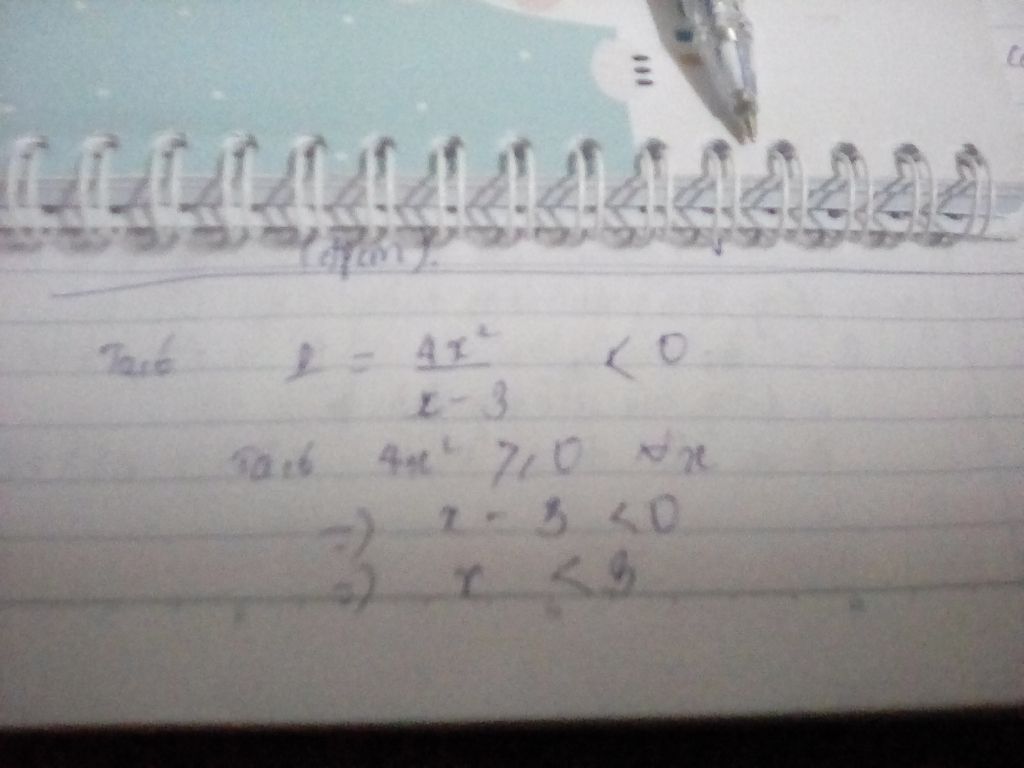 (đpcm).
Ta có P = 4x² / x - 3 < 0
Ta có 4x² ≥ 0 ∀x
=) x - 3 < 0
=) x < 3